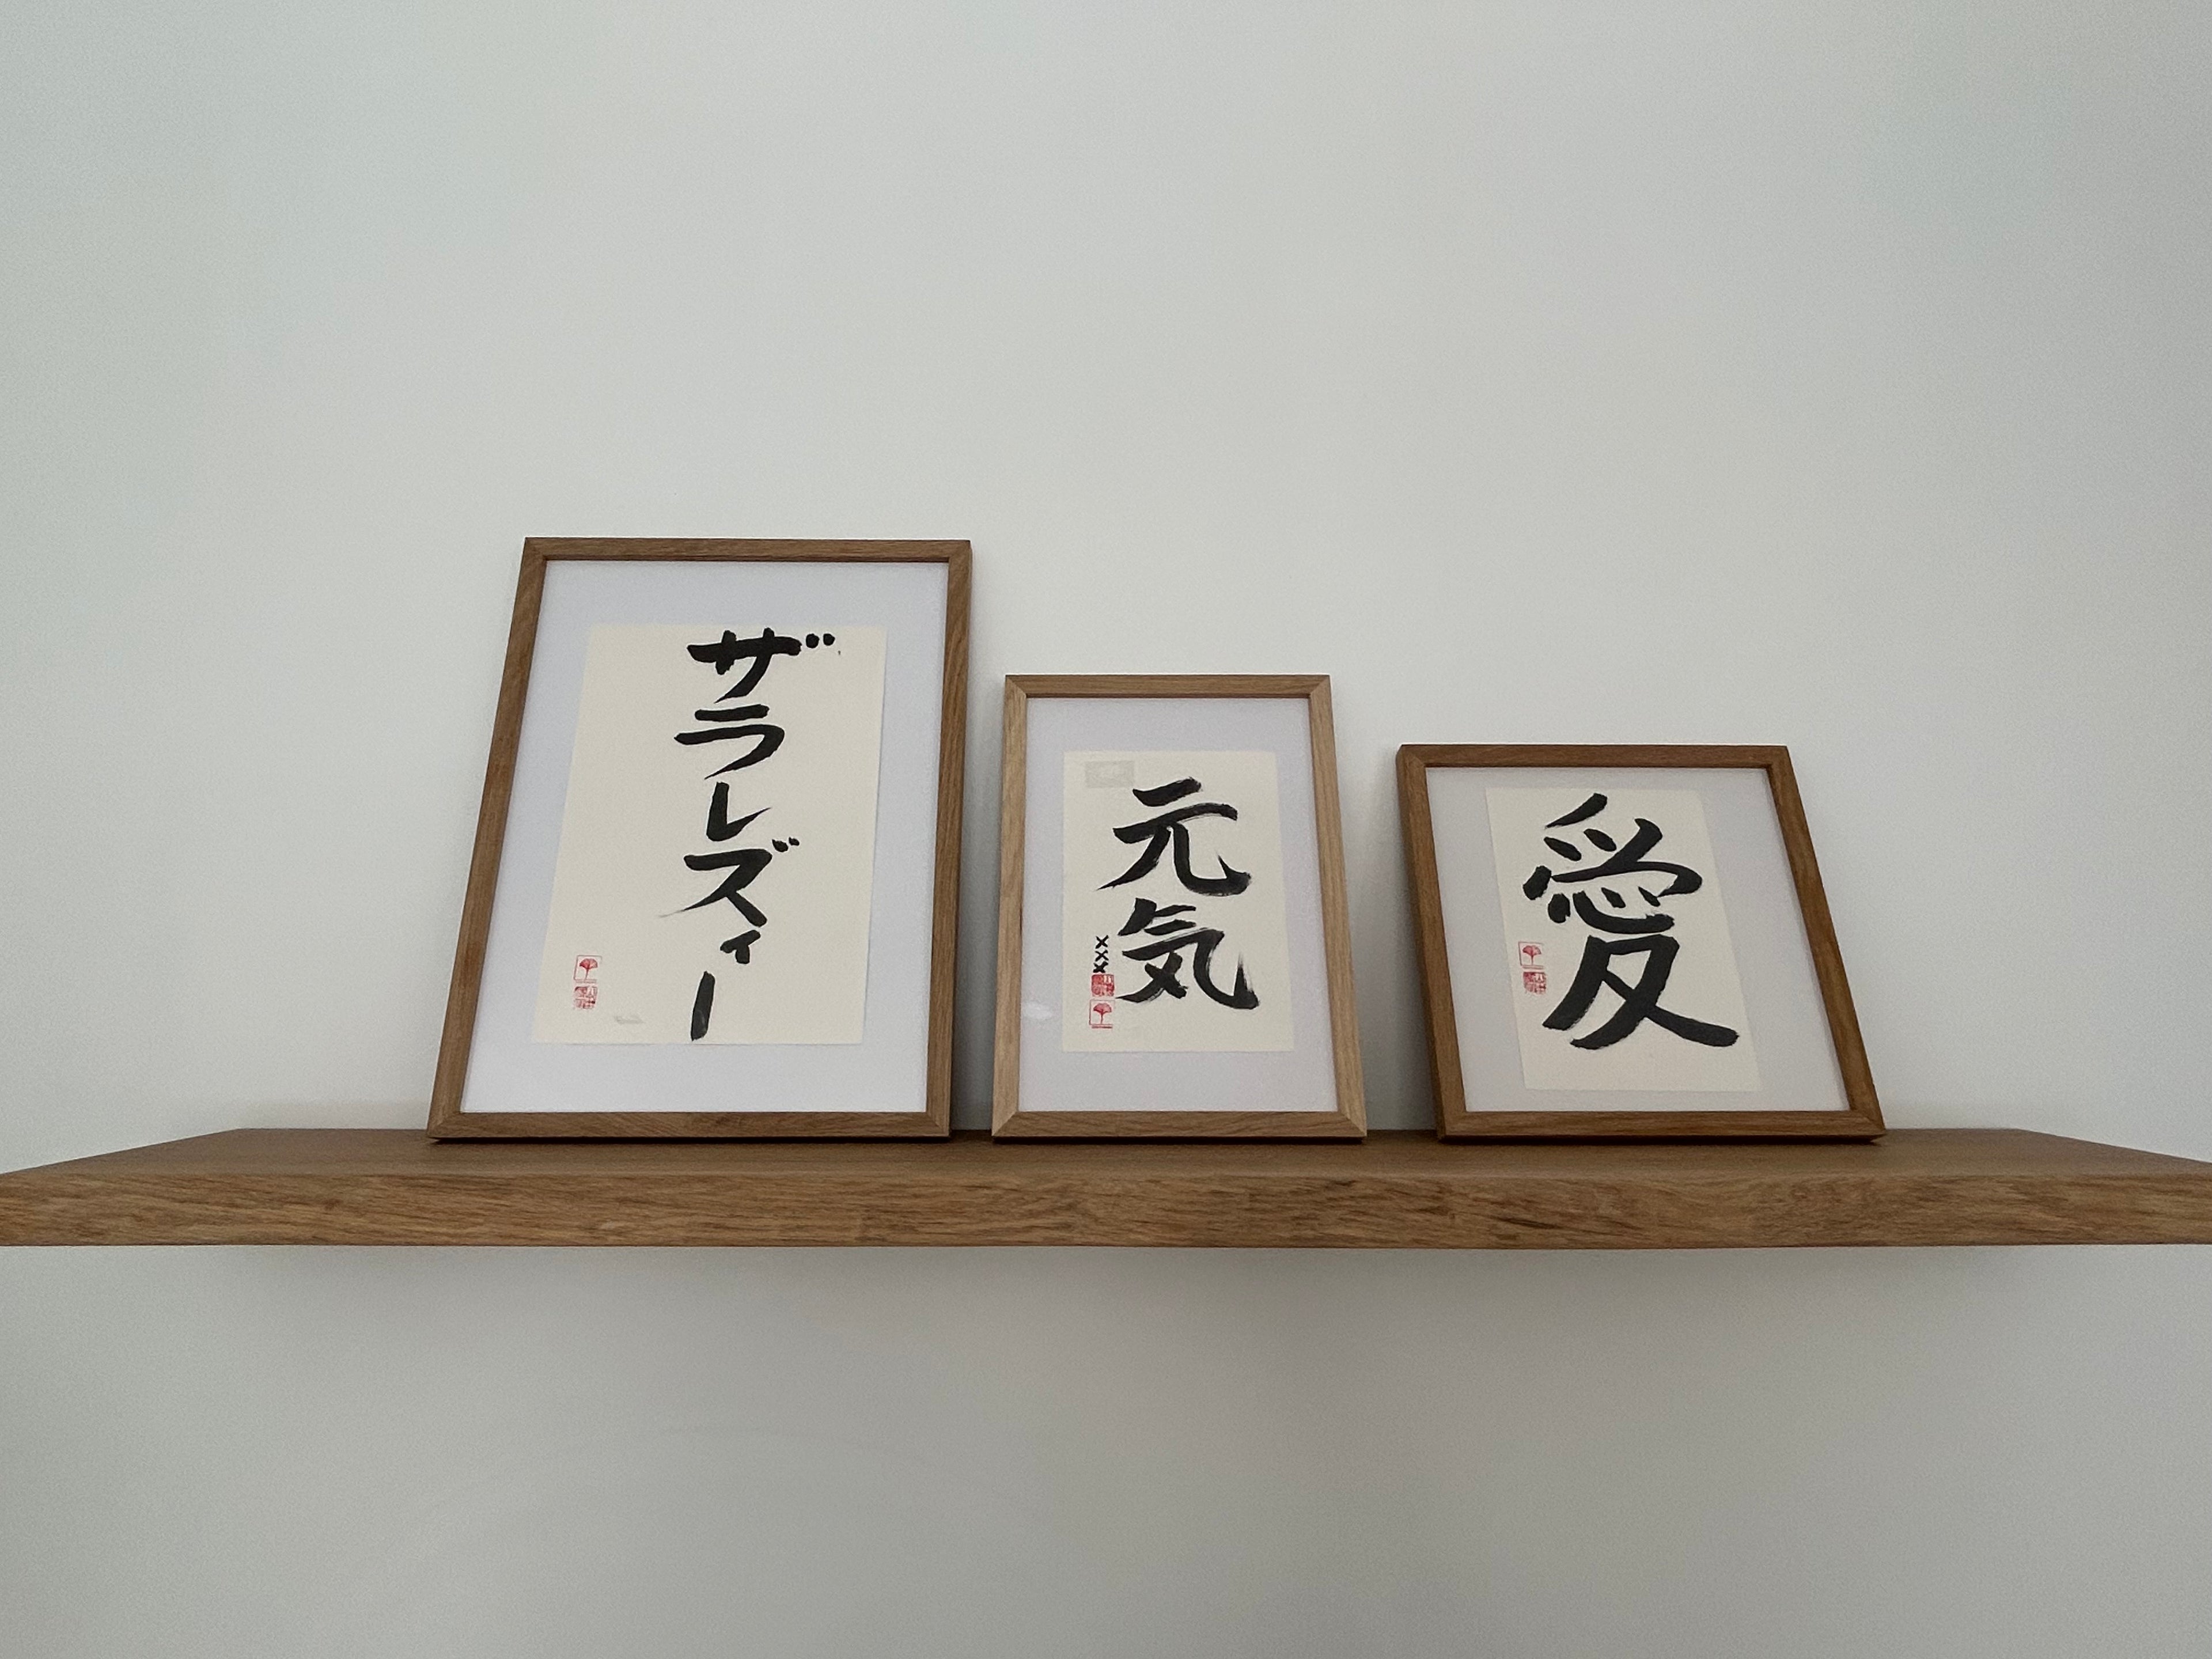 ザラレズィー
元気
xxx
愛